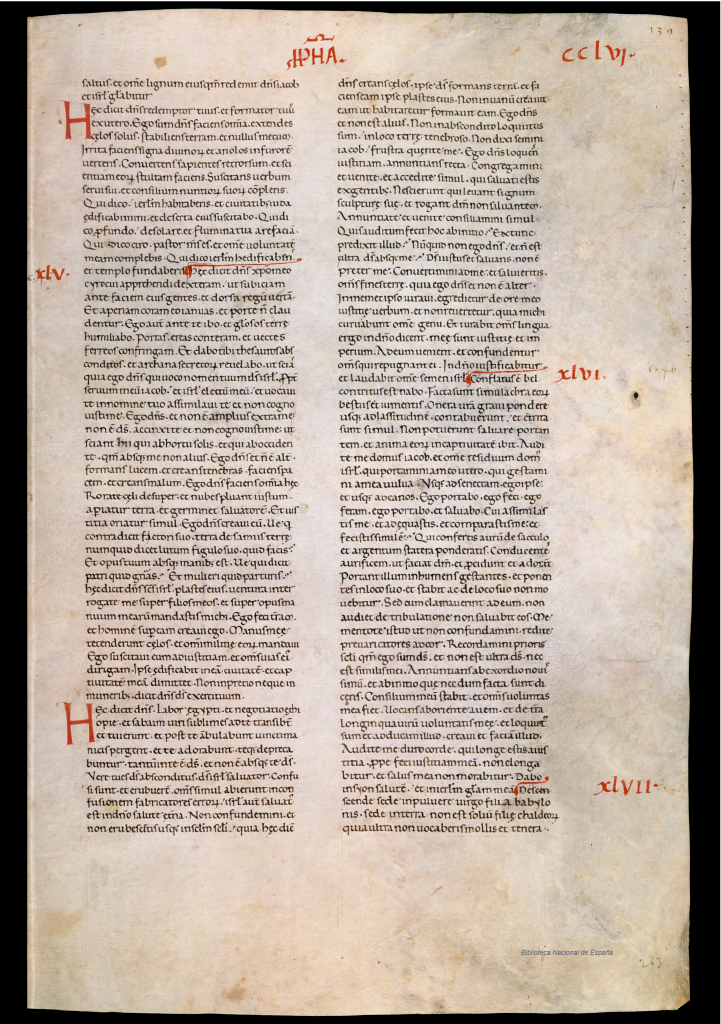 CCLVI.
139
saltus. et om̄e lignum eiusqm̄ redemit dn̄s iacob
et isrl̄ glabitur
Hęc dicit dn̄s redemptor tuus. et formator tuus
exutero. Ego sum dn̄s faciens om̄ia. extendes
cęlos solus. stabiliens terram. et nullus mecum.
Irrita faciens signa divinorum. et ariolos infurorē
uertens. Convertens sapientes retrorsum. et sci
entiam eorum stultam faciens. Suscitans uerbum
serui sui. et consilium nuntiorum suorum cōplens.
Qui dico. ierlm̄ habitaberis. et ciuitatib; iuda
ędificabimini. et deserta eius suscitabo. Qui di
co profundo. desolare. et flumina tua arefaciā.
Qui dico ciro. pastor ms̄ es. et om̄e voluntatē
mean complebis. Qui dico ierlm̄ hedificaberis
xlv.
et templo fundaberis. Hęc dicit dn̄s xp̄o meo
cyro cui apprehendi dexteram. ut subiciam
ante faciem eius gentes. et dorsa regū uertā.
Et aperiam coram eo ianuas. et portę n̄ clau
dentur. Ego ante te ibo. et gl̄osos terre
humiliabo. Portas ereas conteram. et uectes
ferreos confringam. Et dabo tibi thesauros abs
conditos. et archana secretorum. reuelabo. ut scias
quia ego dn̄s qui uoco nomen tuum ds̄ isrl̄. Propt̄
seruum meū iacob. et isrl̄ electū meū. et uocaui
te in nomine tuo assimilaui te et non cogno
uisti me. Ego dn̄s. et non ē amplius extra me
non ē ds̄. accinxi te et non cognouisti me. ut
sciant hii qui ab hortu solis. et qui ab occiden
te. qm̄ absq; me non alius. Ego dn̄s et n̄ ē alt̄.
formans lucem. et creans tenebras. faciens pa
cem. et creans malum. Ego dn̄s faciens om̄ia hęc
Rorate cęli desuper. et nubes pluant iustum.
apiatur terra. et germinet saluatorē. Et ius
titia oriatur simul. Ego dn̄s creaui eū. Ue q
contradicit factori suo. testa de samiis terrę
numquid dicet lutum figulo suo. quid facis.
Et opus tuum absq; manib; est. Ue qui dicit
patri quid gn̄as. Et mulieri quid parturis.
hęc dicit dn̄s scs̄ isrl̄. plastes eius. uentura inter
rogate me super filios meos. et super opus ma
nuum mearū mandastis michi. Ego feci tr̄am.
et hominē sup eam creaui ego. Manus meę
tetenderunt cęlos. et om̄i militię eorum mandaui
Ego suscitaui eum ad iustitiam. et om̄s uias ei
dirigam. Ipse ędificabit meā ciuitatē. et cap
tiuitatē meā dimittet. Non in pretio neque in
munerib;. dicit dn̄s ds̄ exercituum.
Hęc dicit dn̄s. labor egypti. et negotiatio ęthi
opię. et sabaim uiri sublimes ad te transibt̄
et tui erunt. et post te ābulabunt uincti ma
nicis pergent. et te adorabunt. teq; depreca
buntur. tantū in te ē ds̄. et non ē absq; te ds̄.
Vere tu es ds̄ absconditus. ds̄ isrl̄ saluator. Confu
si sunt. et erubuert̄. om̄s simul abierunt in con
fusionem fabricatores errorum. isrl̄ aut̄ saluat̄
est in dn̄o salute ęt̄na. Non confundemini. et
non erubescetis usq; in sclm̄ scl̄i. quia hęc dic̄
dn̄s creans cęlos. ipse ds̄ formans terrā. et fa
ciens eam ipse plastes eius. Non in uanū creauit
eam. ut habitaretur formauit eam. Ego dn̄s
et non est alius. Non in abscondito locutus
sum. in loco terrę tenebroso. Non dixi semini
iacob. frustra querite me. Ego dn̄s loquens
iustitiam. annuntians recta. Congregamini
et uenite. et accedite simul. qui saluati estis
ex gentib;. Nescierunt qui leuant signum
sculpturę suę. et rogant dm̄ non saluantem.
Annuntiate et uenite consiliamini simul.
Quis auditum fecit hoc ab initio. Ex tunc
predixit illud. Nūquid non ego dn̄s. et n̄ est
ultra ds̄ absq; me. Ds̄ iustus et saluans. non ē
preter me. Convertimini ad me. et salui eritis.
om̄s fines terrę. quia ego dn̄s et non ē alter.
In memet ipso iuraui. egredietur de ore meo
iustitię uerbum. et non reuertetur. quia michi
curuabunt̄ om̄e genu. Et iurabit om̄s lingua
ergo in dn̄o dicent. meę sunt iustitię et im
perium. Ad eum uenient. et confundentur
om̄s qui repugnant ei. In dn̄o iustificabitur
xlvi.
et laudabit om̄e semen isrl̄. Conflatus ē bel
contritus est nabo. Facta sunt simulachra eorum
bestiis et iumentis. Onera urā graui pondere
usq; ad lassitudinē. contabuerunt. et c̄trita
sunt simul. Non potuerunt saluare portan
tem. et anima eorum in captiuitatē ibit. Audi
te me domus iacob. et om̄e residuum dom̄
isrl̄. qui portamini a meo utero. qui gesta
mini a mea uulua. Vsq; ad senectam. ego ipse.
et usq; ad canos. Ego portabo. ego feci. ego
feram. ego portabo. et saluabo. Cui assimilas
tis me. et adequastis. et comparastis me. et
fecistis similē. Qui confertis aurū de sacculo
et argentum statera ponderatis. Conducentes
aurificem. ut faciat dm̄. et procidunt et adorāt
Portant illum in humeris gestantes. et ponen
tes in loco suo. et stabit ac de loco suo non mo
uebitur. Sed cum clamauerint ad eum. non
audiet. de tribulatione non saluabit eos. Me
mentote istud ut non confundamini. redite
preuaricatores ad cor. Recordamini prioris
scl̄i. qm̄ ego sum ds̄. et non est ultra ds̄. nec
est similis mei. Annuntians ab exordio noui
simū. et ab initio que nec dum facta sunt di
cens. Consilium meū stabit. et om̄s uoluntas
mea fiet. Uocans ab oriente auem. et de t̄ra
longinqua uirū uoluntatis meę. et locutus
sum et adducam illud. creaui et faciam illud.
Audite me duro corde. qui longe estis a ius
titia. Prope feci iustitiam meā. non elonga
bitur. et salus mea non morabitur. Dabo
in syon salutē. et in ierlm̄ glām meā. Descen
xlvii.
scende sede in puluere uirgo filia babylo
nis. sede in terra. non est soliū filię chaldeorum
quia ultra non uocaberis mollis et tenera.
Biblioteca Nacional de España
243